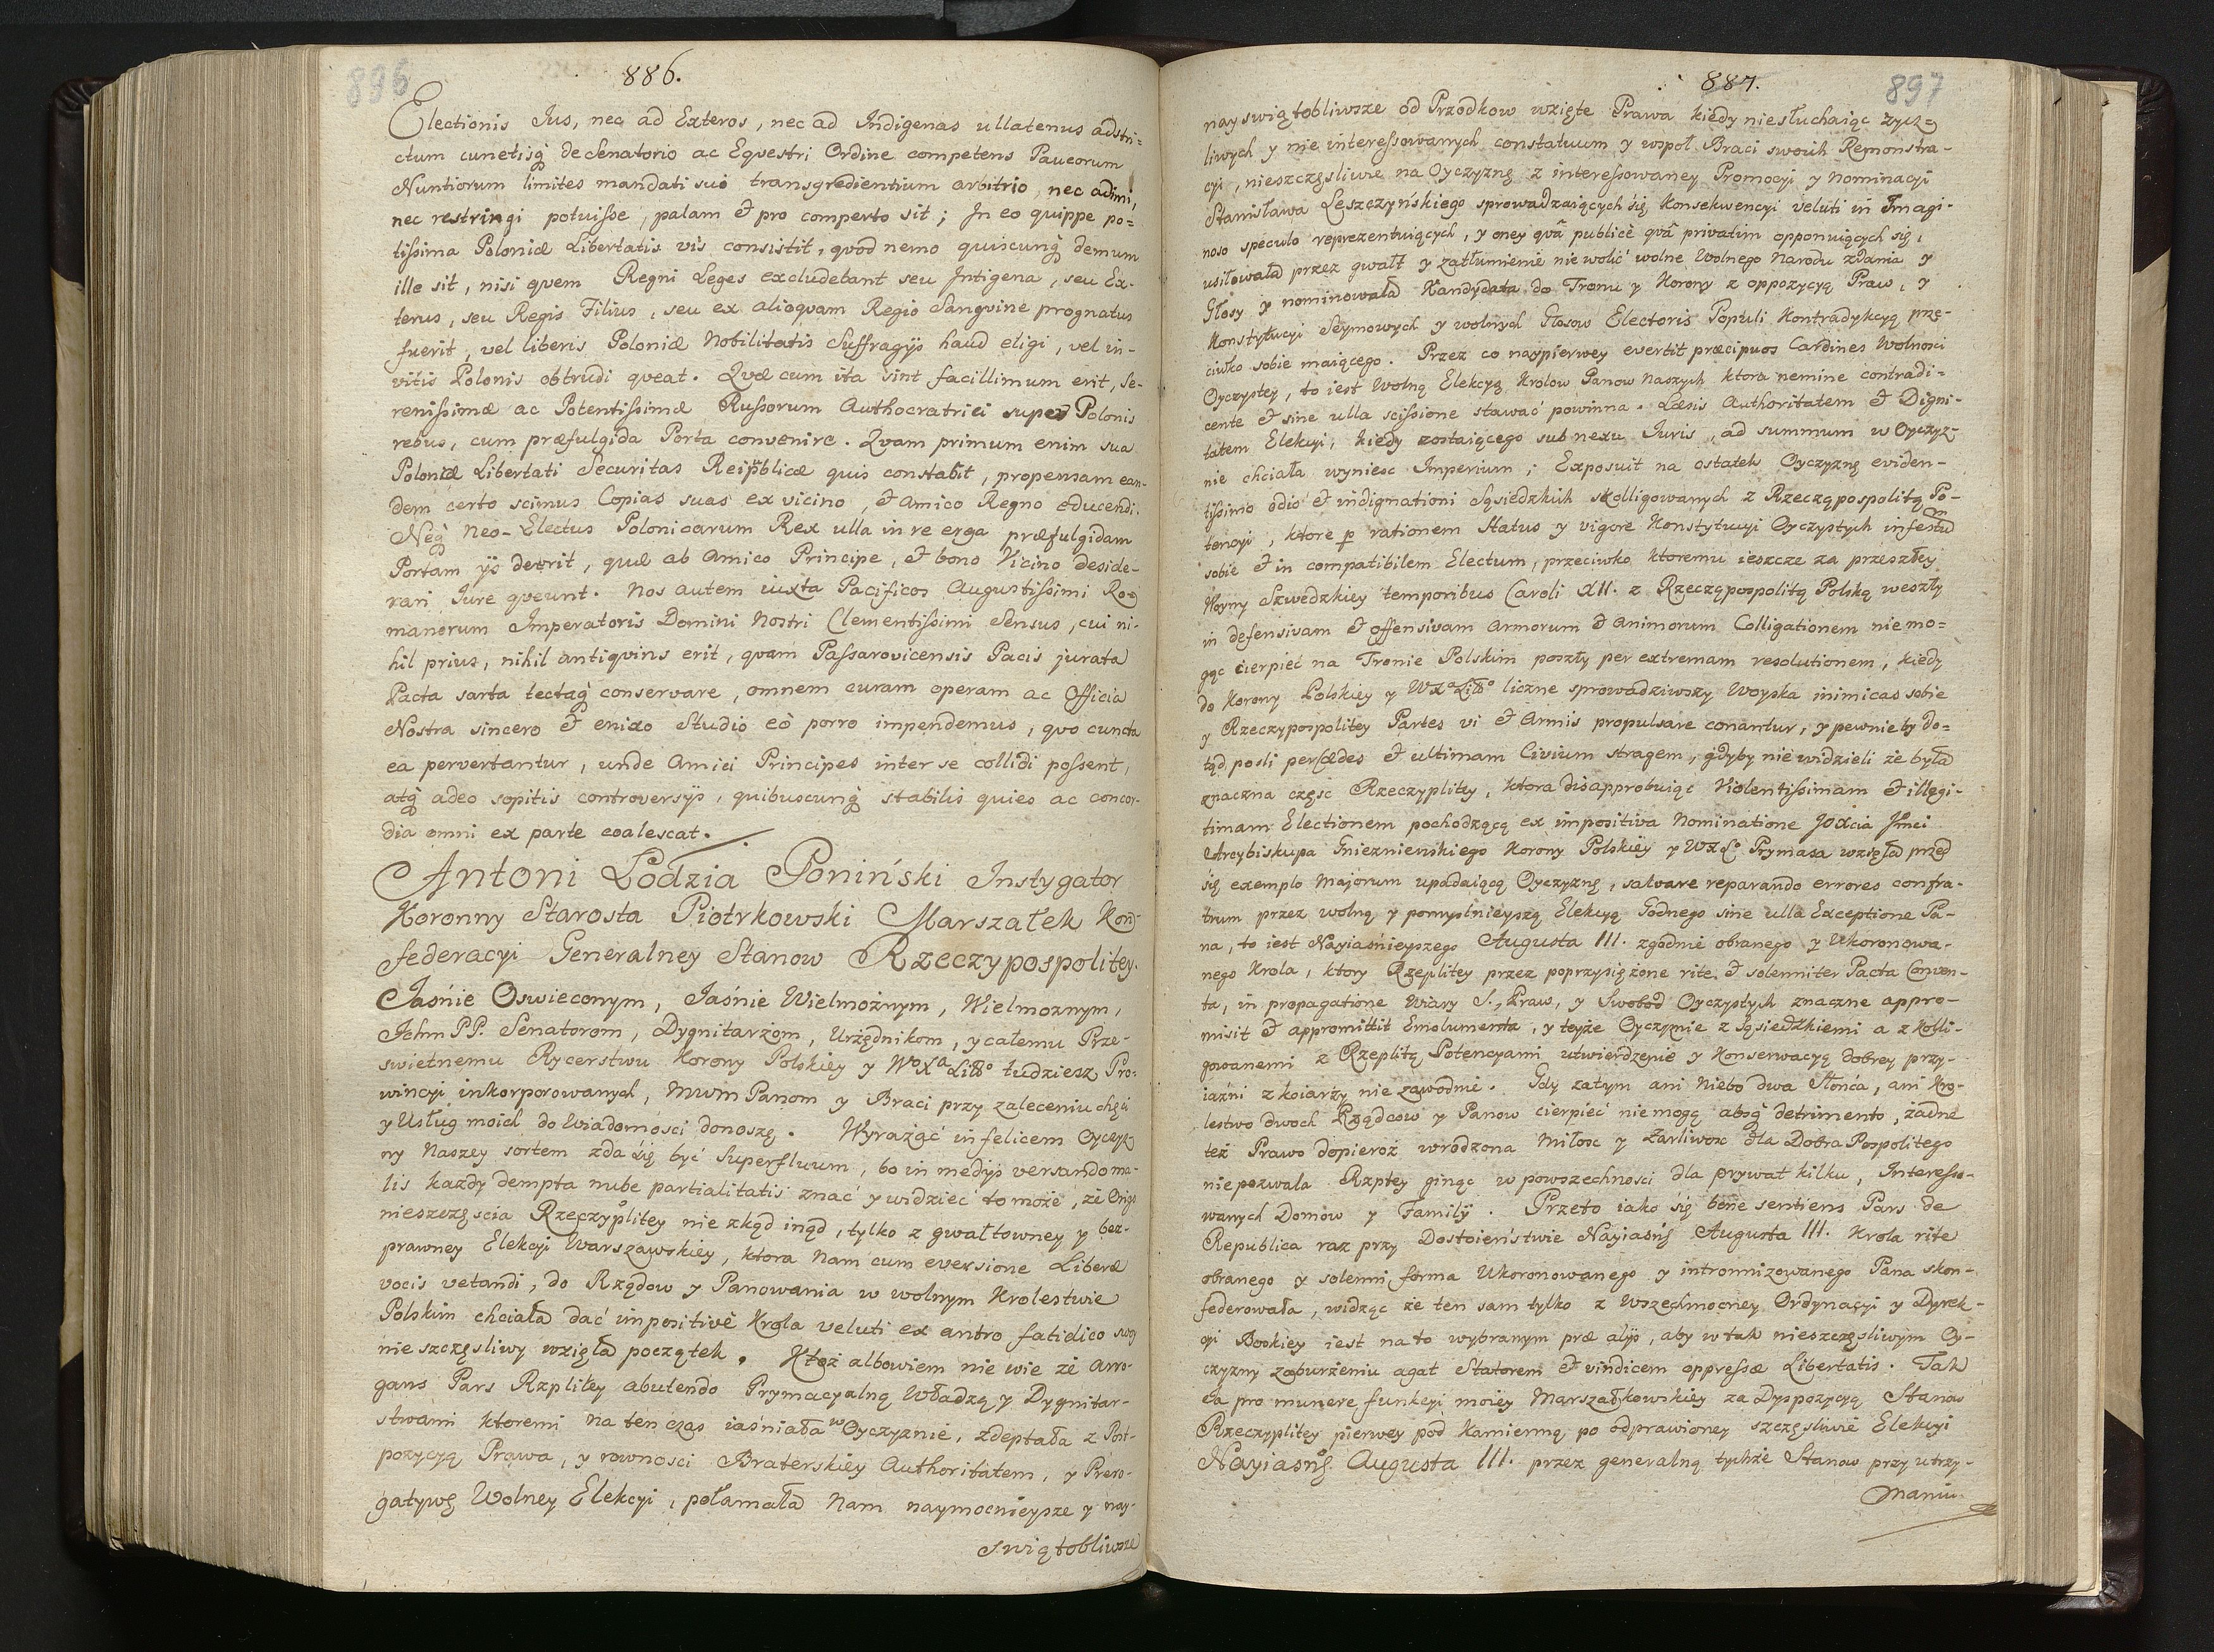 896
886.
Electionis Jus, nec ad Exteros, nec ad Indigenas ullatenus adstri=
ctum cunctisq de Senatorio ac Equestri Ordine competens Paucorum
Nuntiorum limites mandati sui transgredientium arbitrio, nec adimi,
nec restringi potuisse, palam & pro comperto sit; In eo quippe po=
tissima Poloniæ Libertatis vis consistit, qvod nemo quiscunq demum
ille sit, nisi qvem Regni Leges excludebant seu Intigena, seu Ex-
terus, seu Regis Filius, seu ex alioqvam Regio Sangvine prognatus
fuerit, vel liberis Poloniæ Nobilitatis Suffragijs haud eligi, vel in-
vitis Polonis obtrudi qveat. Qvæ cum ita sint facillimum erit, Se-
renissimæ ac Potentissimæ Russorum Authocratrici super Polonis
rebus, cum præfulgida Porta convenire. Qvam primum enim sua
Poloniæ Libertati Securitas Reipublicæ quis constabit, propensam ean-
dem certo scimus Copias suas ex vicino, & Amico Regno educendi.
Neq Neo-Electus Polonicarum Rex ulla in re erga præfulgidam
Portam ijs deerit, quæ ab Amico Principe, & bono Vicino deside-
rari Jure qveunt. Nos autem iuxta Pacificos Augustissimi Ro-
manorum Imperatoris Domini Nostri Clementissimi Sensus, cui ni-
hil prius, nihil antiqvius erit, qvam Passarovicensis Pacis jurata
Pacta sarta tectaq conservare, omnem curam operam ac Officia
Nostra sincero & enixo Studio eò porro impendemus, qvo cuncta
ea pervertantur, unde Amici Principes inter se collidi possent,
atq adeo sopitis controversijs, quibuscunq stabilis quies ac concor-
dia omni ex parte coalescat.
Antoni Lodzia Poniński Instygator
Koronny Starosta Piotrkowski Marszałek Kon-
federacyi Generalney Stanow Rzeczypospolitey.
Jaśnie Oswieconym, Jaśnie Wielmożnym, Wielmoznym,
Ichm PP. Senatorom, Dygnitarzom, Urzędnikom, y całemu Prze-
swietnemu Rycerstwu Korony Polskiey y Wo Xa Litto tudziesz Pro-
wincyi inkorporowanych, mwm Panom y Braci przy zaleceniu chęci
y Usług moich do Wiadomosci donoszę. Wyrażać infelicem Oyczyz
ny Naszey sortem zda się być Superfluum, bo in medijs versando ma-
lis kazdy dempta nube partialitatis znać y widzieć to może, że Origo
nieszczęscia Rzeczyplitey nie zkąd inąd, tylko z gwałtowney y bez-
prawney Elekcyi Warszawskiey, ktora Nam cum eversione Liberæ
vocis vetandi, do Rządow y Panowania w wolnym Krolestwie
Polskim chciała dać impositivè Krola veluti ex antro fatidico swoy
nieszczęsliwy wzięła początek. Ktoż albowiem nie wie że arro-
gans Pars Rzplitey abutendo Prymacyalną Władzą y Dygnitar-
stwami ktoremi na ten czas iaśniała w Oyczyznie, zdeptała z Post-
pozycyą Prawa, y rownosci Braterskiey Authoritatem, y Prero-
gatywę Wolney Elekcyi, połamała Nam naymocnieysze y nay-
swiątobliwsze
887.
897
nayswiątobliwsze od Przodkow wzięte Prawa kiedy niesłuchaiąc życz-
liwych y nie interessowanych constatuum y wspoł Braci swoich Remonstra-
cyi, nieszczęsliwie na Oyczyznę z interessowaney Promocyi y Nominacyi
Stanisława Leszczyńskiego sprowadzaiących się Konsekwencyi veluti in Imagi-
noso speculo reprezentuiących, y oney qvà publicè qvà privatim opponuiących się,
usiłowała przez gwałt y zatłumienie niewolić wolne Wolnego Narodu zdania y
Głosy y nominowała Kandydata do Tronu y Korony z oppozycyą Praw, y
Konstytucyi Seymowych y wolnych Głosow Electoris Populi Kontradykcyą prze-
ciwko sobie maiącego. Przez co naypierwey evertit præcipuos Cardines Wolnosci
Oyczystey, to iest Wolną Elekcyą Krolow Panow Naszych, ktora nemine contradi=
cente & sine ulla scissione stawać powinna. Læsis Authoritatem & Digni-
tatem Elekcyi, kiedy zostaiącego sub nexu Juris, ad summum w Oyczyz-
nie chciała wyniesc Imperium; Exposuit na ostatek Oyczyznę eviden-
tissimo odio & indignationi Sąsiedzkich skolligowanych z Rzecząpospolitą Po-
tencyi, ktore p rationem Status y vigore Konstytucyi Oyczystych infestum
sobie & in compatibilem Electum, przeciwko ktoremu ieszcze za przeszłey
Woyny Szwedzkiey temporibus Caroli XII. z Rzecząpospolitą Polską weszły
in defensivam & offensivam armorum & animorum Colligationem nie mo=
gąc cierpieć na Tronie Polskim poszły per extremam resolutionem, kiedy
do Korony Polskiey y WXa Litto liczne sprowadziwszy Woyska inimicas sobie
y Rzeczypospolitey Partes vi & Armis propulsare conantur, y pewnieby do=
tąd posli per cædes & ultimam Civium stragem, gdyby nie widzieli że była
znaczna częsc Rzeczyplitey, ktora disapprobuiąc Violentissimam & illegi-
timam Electionem pochodzącą ex impositiva Nominatione Joxcia Jmci
Arcybiskupa Gnieznieńskiego Korony Polskiey y WXLo Prymasa wzięła przed
się exemplo Majorum upadaiącą Oyczyznę, salvare reparando errores confra-
trum przez wolną y pomyslnieyszą Elekcyą Godnego sine ulla Exceptione Pa-
na, to iest Nayiaśnieyszego Augusta III. zgodnie obranego y Ukoronowa-
nego Krola, ktory Rzeplitey przez poprzysiężone rite & solenniter Pacta Conven-
ta, in propagatione Wiary S., Praw, y Swobod Oyczystych znaczne appro-
misit & appromittit Emolumenta, y teyże Oyczyznie z Sąsiedzkiemi a z Kolli-
gowanemi z Rzeplitą Potencyami utwierdzenie y Konserwacyą dobrey przy-
iaźni z koiarzy nie zawodnie. Gdy zatym ani Niebo dwa Słońca, ani Kro-
lestwo dwoch Rządcow y Panow cierpieć niemogą absq detrimento, żadne
też Prawo dopieroż wrodzona Miłosc y Żarliwosc dla Dobra Pospolitego
niepozwala Rzptey ginąc w powszechnosci dla prywat kilku, Interesso-
wanych Domow y Familij. Przeto iako się bene sentiens Pars de
Republica raz przy Dostoieństwie Nayiaśń Augusta III. Krola rite
obranego y solenni forma Ukoronowanego y intronnizowanego Pana skon-
federowała, widząc że ten sam tylko z Wszechmocney Ordynacyi y Dyrek-
cyi Boskiey iest na to wybranym præ alijs, aby w tak nieszczęsliwym Oy-
czyzny zaburzeniu agat Statorem & vindicem oppressæ Libertatis. Tak
ea pro munere funkcyi moiey Marszałkowskiey za Dyspozycyą Stanow
Rzeczyplitey pierwey pod Kamienną po odprawioney szczęsliwie Elekcyi
Nayiaśń Augusta III. przez generalną tychże Stanow przy utrzy-
maniu